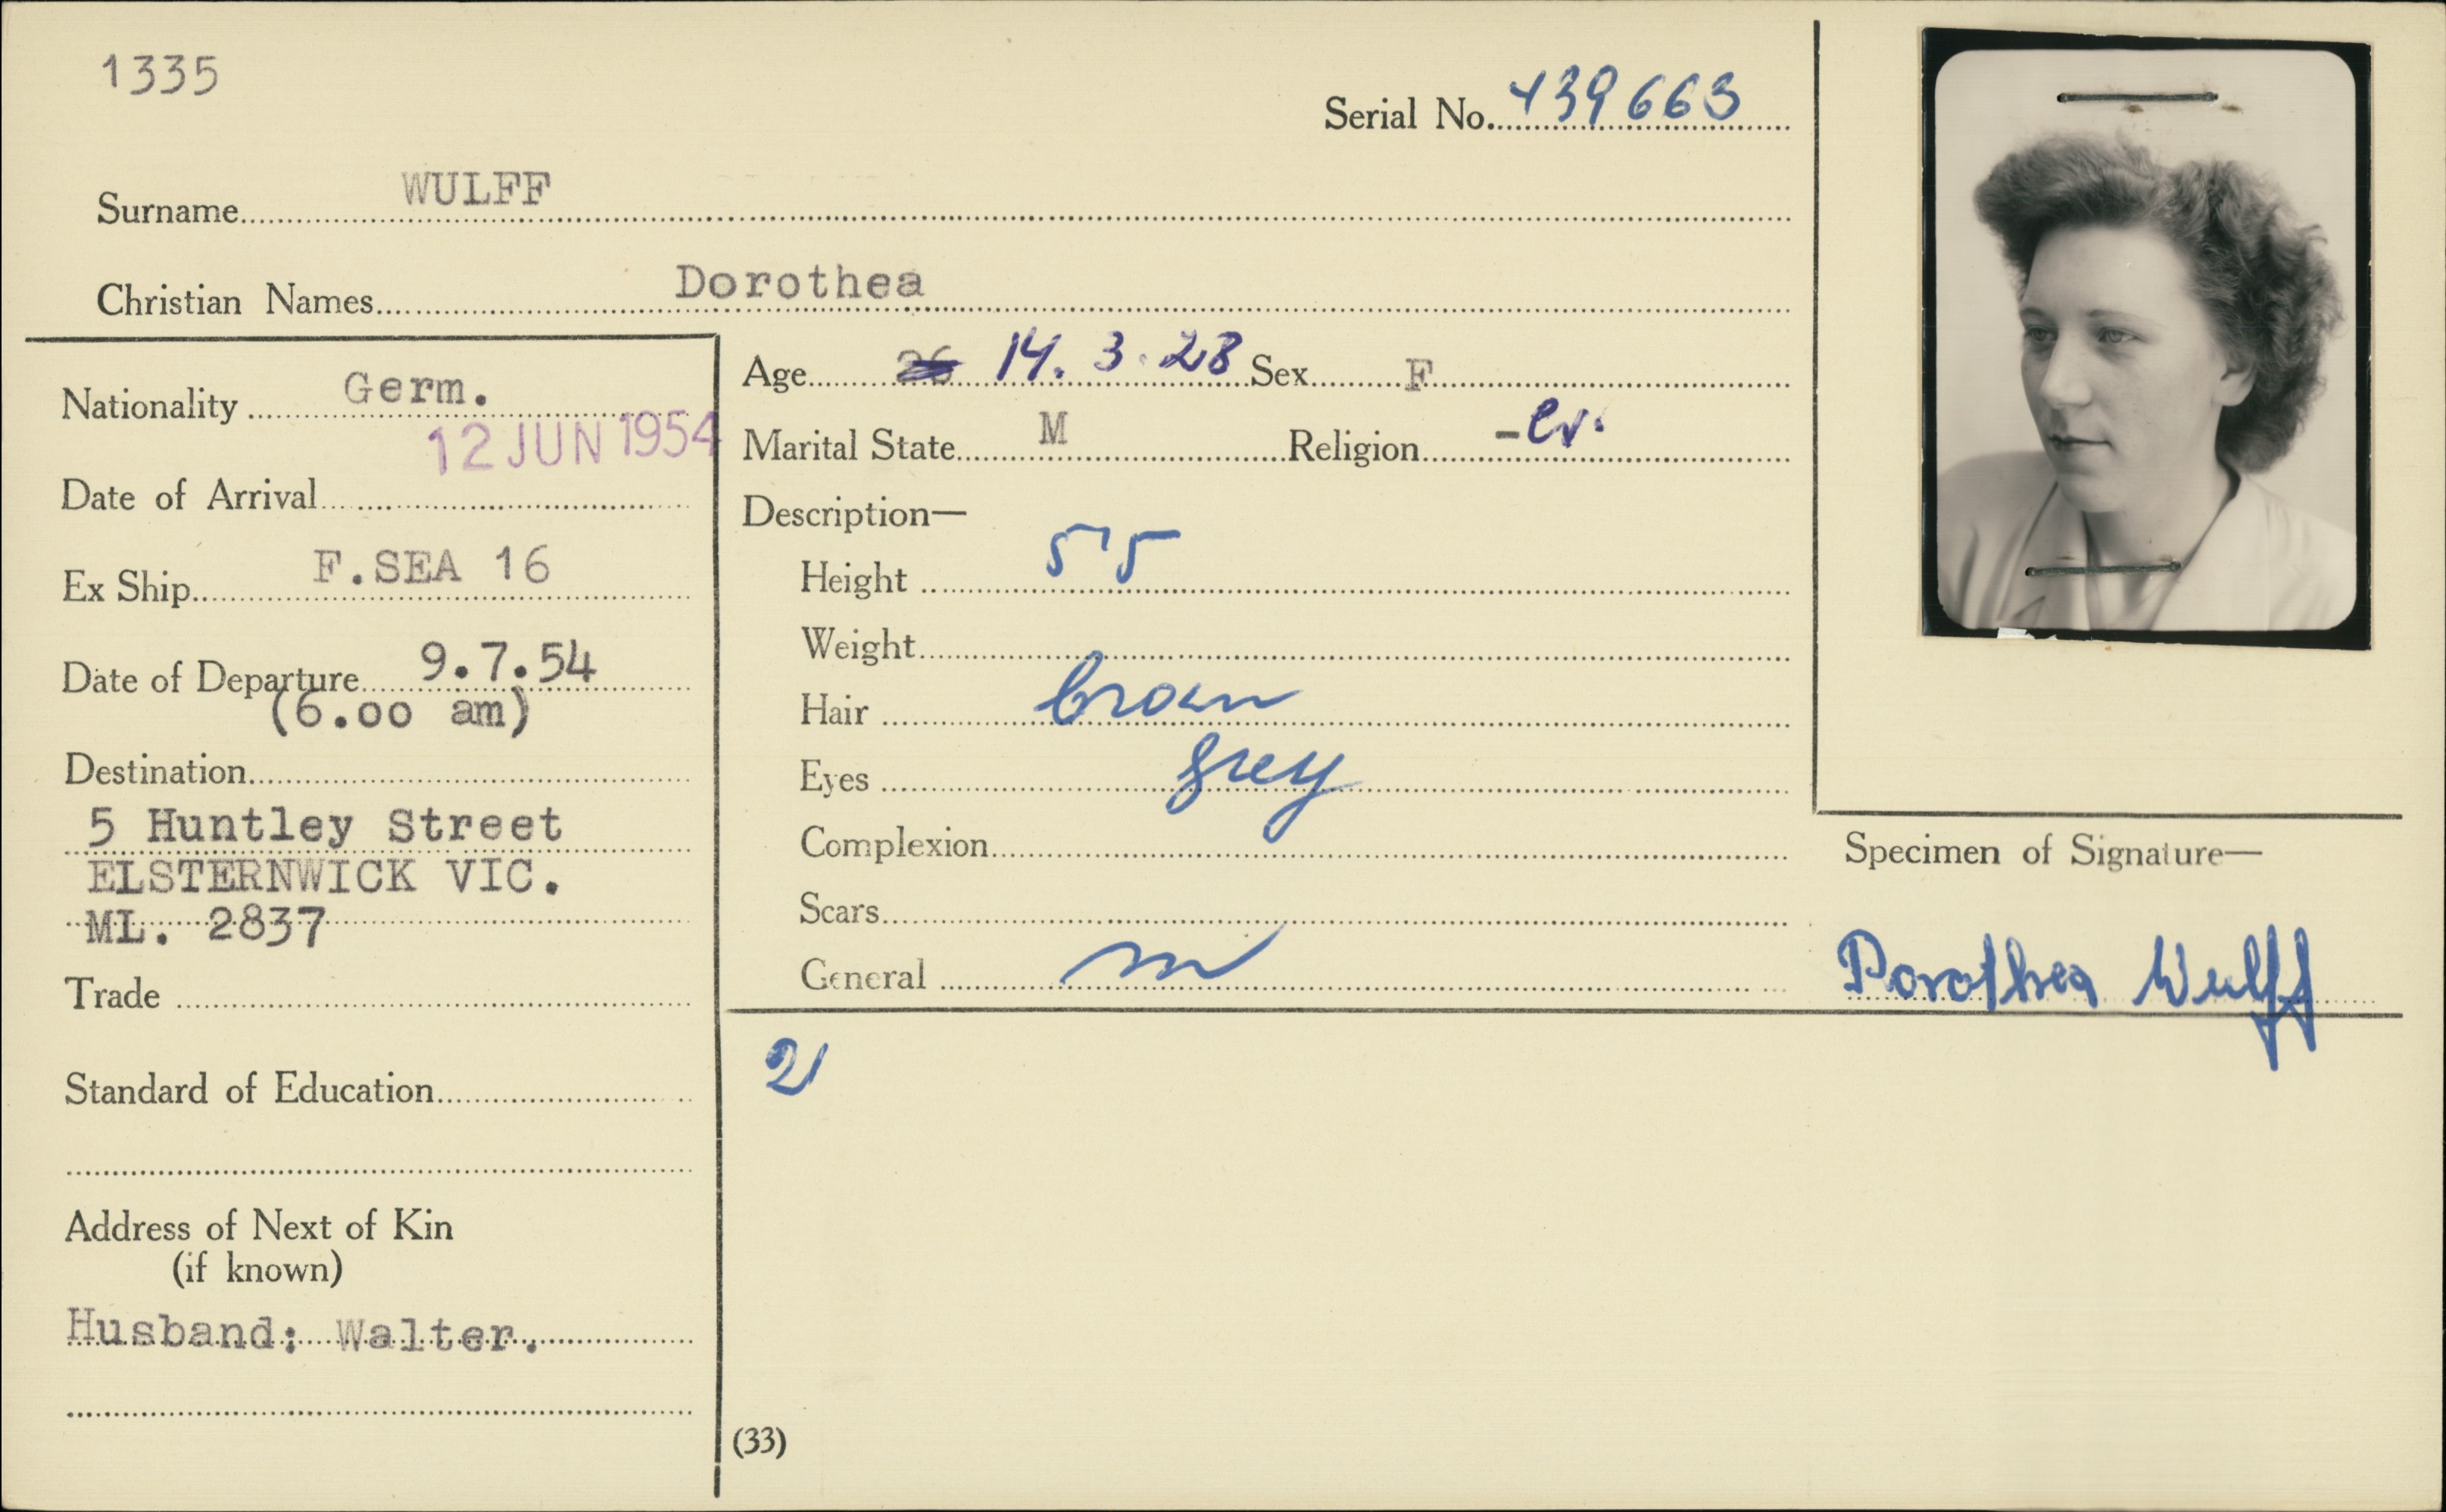 1335
Serial No. 439663
Surname WULFF
Christian Names Dorothea
Nationality Germ.
12 JUN 1954
Date of Arrival
Ex Ship F.SEA 16
Date of Departure 9.7.54
(6.00 am)
Destination
5 Huntley Street
ELSTERNWICK VIC.
ML. 2837
Trade
Standard of Education
Address of Next of Kin
(if known)
Husband: Walter.
Age 26 14. 3. 28 Sex F
Marital State M Religion - ev.
Description—
Height 5'5
Weight
Hair brown
Eyes grey
Complexion
Scars
General
21
(33)
Specimen of Signature—
Dorothea Wulff